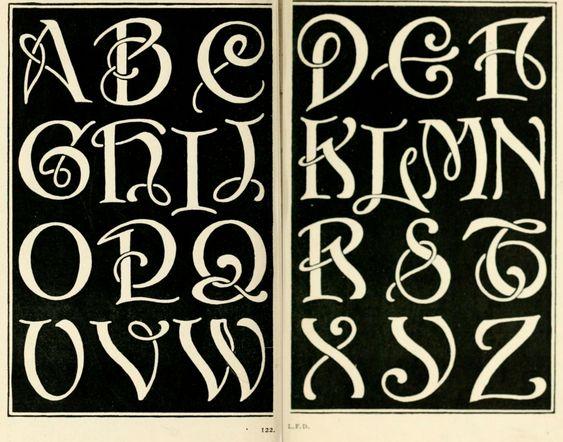 A B C D E F
G H I J K L M N
O P Q R S T
U V W X Y Z
122. L.F.D.